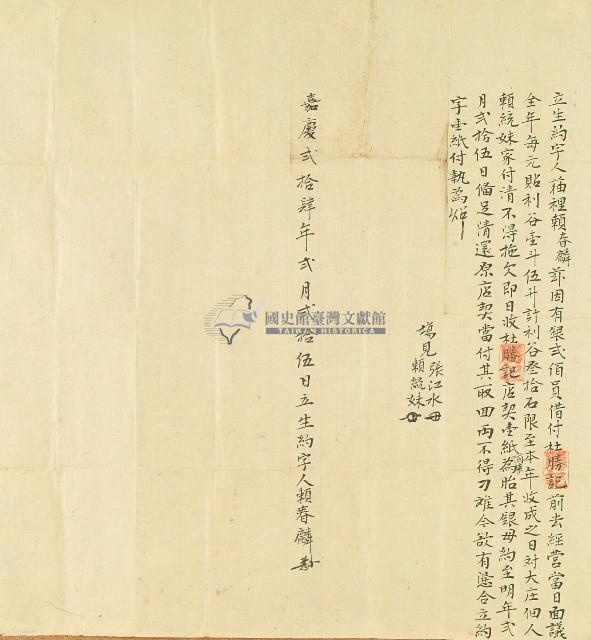 立生約字人蒲裡賴春麟茲因有銀弍佰員借付杜勝記前去經營當日面議
全年每元貼利谷壹斗伍升計利谷叁拾石限至本年收成之日對大庄佃人
賴統妹家付清不得拖欠即日收杜勝記店契壹紙為胎其銀母約至明年弍
月弍拾伍日偹足清還原店契當付其取回両不得刁难今欲有憑合立約
字壹紙付執為炤
塲見張江水
賴統妹
嘉慶弍拾肆年弍月弍拾伍日立生約字人賴春麟
國史館臺灣文獻館
TAIWAN HISTORICA